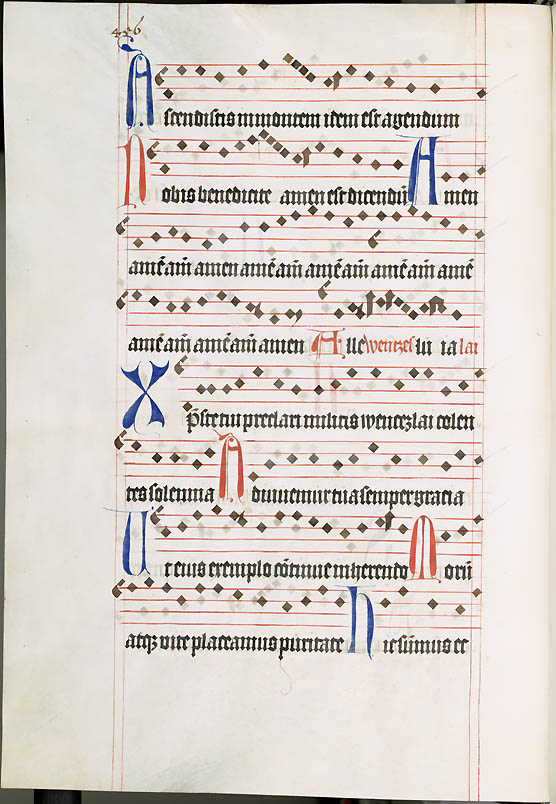 456
Ascendistis in montem idem est agendum
Nobis benedicite amen est dicendū Amen
amē am̄ amen amē am̄ amē am̄ amē am̄ amē
amē am̄ amē am̄ amen Alle wenczel lu ia lai
festū preclari militis wenczlai colen
tes solemnia Adiuvemur tua semper gracia
Ut eius exemplo cōtinue inherendo Morū
atqꝫ vite placeamus puritate Ne simus ec